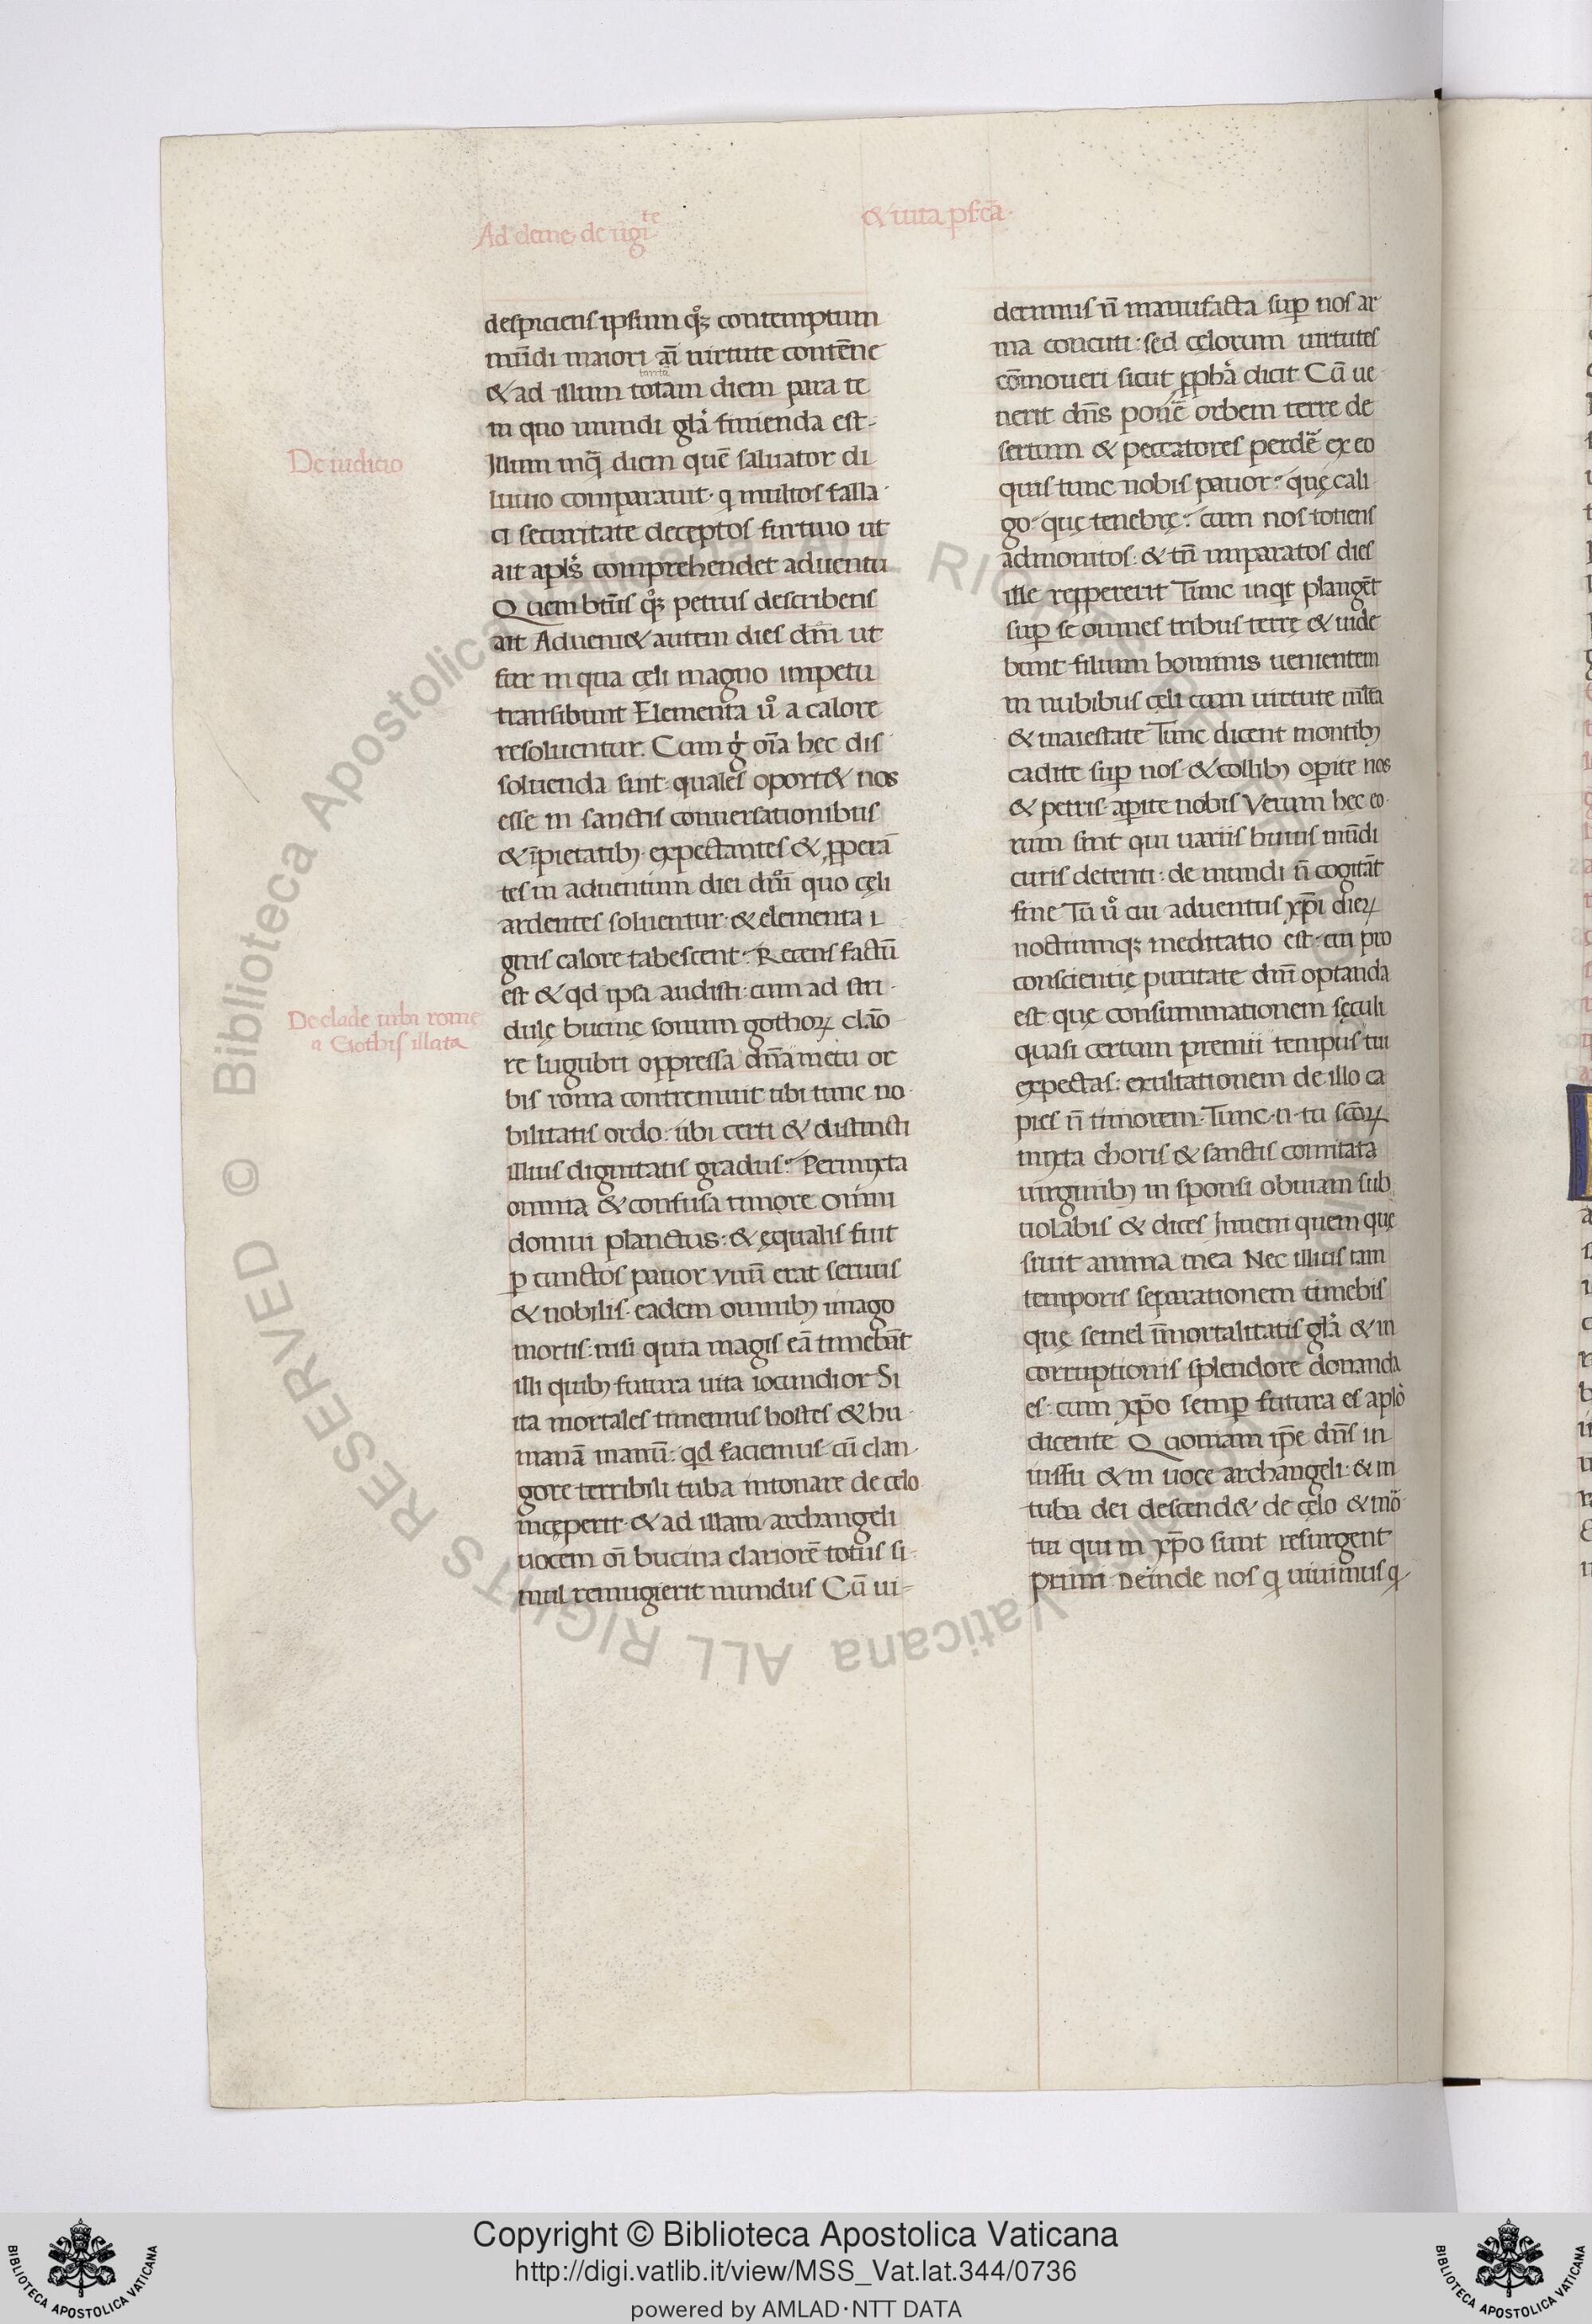 Ad deme, de uigi te
& uita pfcā.
despiciens ipsum qͦꝫ contemptum
mūdi maiori aī uirtute contēne
tanta
& ad illum totam diem para te
in quo mundi gla finienda est-
De iudicio
Illum inq̄ diem quē saluator di
luuio comparauit· q multos falla
ci securitate deceptos furtiuo ut
ait apls comprehendet aduentu
Quem btūs qͦꝫ petrus describens
ait Adueni& autem dies dm̄ ut
fur in qua cęli magno impetu
transibunt Elementa uͦ a calore
resoluentur. Cum g oīa hęc dis
soluenda sint· quales oport& nos
esse in sanctis conuersationibus
& īpietatibꝫ expectantes & pperā
tes in aduentum diei dm̄ quo cęli
ardentes soluentur· & elementa i
gnis calore tabescent· Recens factū
est & qd ipsa audisti· cum ad stri
De clade urbi rome
a Gothis illata
dulę bucinę sonum gothoꝝ clāo
re lugubri oppressa dn̄a metu or
bis roma contremuit ubi tunc no
bilitatis ordo· ubi certi & distincti
illius dignitatis gradus· Permixta
omnia & confusa timore omni
domui planctus· & ęqualis fuit
p cunctos pauor vnū erat seruus
& nobilis· eadem omnibꝫ imago
mortis· nisi quia magis eā timebāt
illi quibꝫ futura uita iocundior Si
ita mortales timemus hostes & hu
manā manū· qd faciemus· cū clan
gore terribili tuba intonare de celo
incęperit· & ad illam archangeli
uocem om̄ bucina clariorē totus si
mul remugierit mundus Cū ui=
derimus n̄ manufacta sup nos ar
ma concuti· sed cęlorum uirtutes
cōmoueri sicut ppha dicit Cū ue
nerit dn̄s ponē orbem terre de
sertum & peccatores perdē ex eo
quis tunc nobis pauor· quę cali
go· quę tenebrę· cum nos totiens
admonitos· & tn̄ imparatos dies
ille reppererit Tunc inqt plangēt
sup se omnes tribus terrę & uide
bunt filium hominis uenientem
in nubibus cęli cum uirtute mlta
& maiestate Tunc dicent montibꝫ
cadite sup nos & collibꝫ operite nos
& petris aperite nobis Verum hec eo
rum sint qui uariis huius mūdi
curis detenti· de mundi n̄ cogitāt
fine Tu uͦ cui aduentus xp̄i dieꝝ
noctiumqꝫ meditatio est· cui pro
conscientię puritate dm̄ optanda
est quę consummationem sęculi
quasi certum premii tempus tui
expectas· exultationem de illo ca
pies n̄ timorem· Tunc·n·tu scōꝝ
mixta choris & sanctis comitata
uirginibꝫ in sponsi obuiam sub
uolabis & dices Inueni quem quę
siuit anima mea Nec illius iam
temporis separationem timebis
quę semel īmortalitatis gla & in
corruptionis splendore donanda
es· cum xp̄o semp futura es aplo
dicente Quoniam ip̄e dn̄s in
iussu & in uoce archangeli· & in
tuba dei descend& de cęlo & mō
tui qui in xp̄o sunt resurgent
primi· Deinde nos q uiuimus q
© Biblioteca Apostolica Vaticana ALL RIGHTS RESERVED
Copyright © Biblioteca Apostolica Vaticana
http://digi.vatlib.it/view/MSS_Vat.lat.344/0736
powered by AMLAD·NTT DATA
BIBLIOTECA APOSTOLICA VATICANA
BIBLIOTECA APOSTOLICA VATICANA